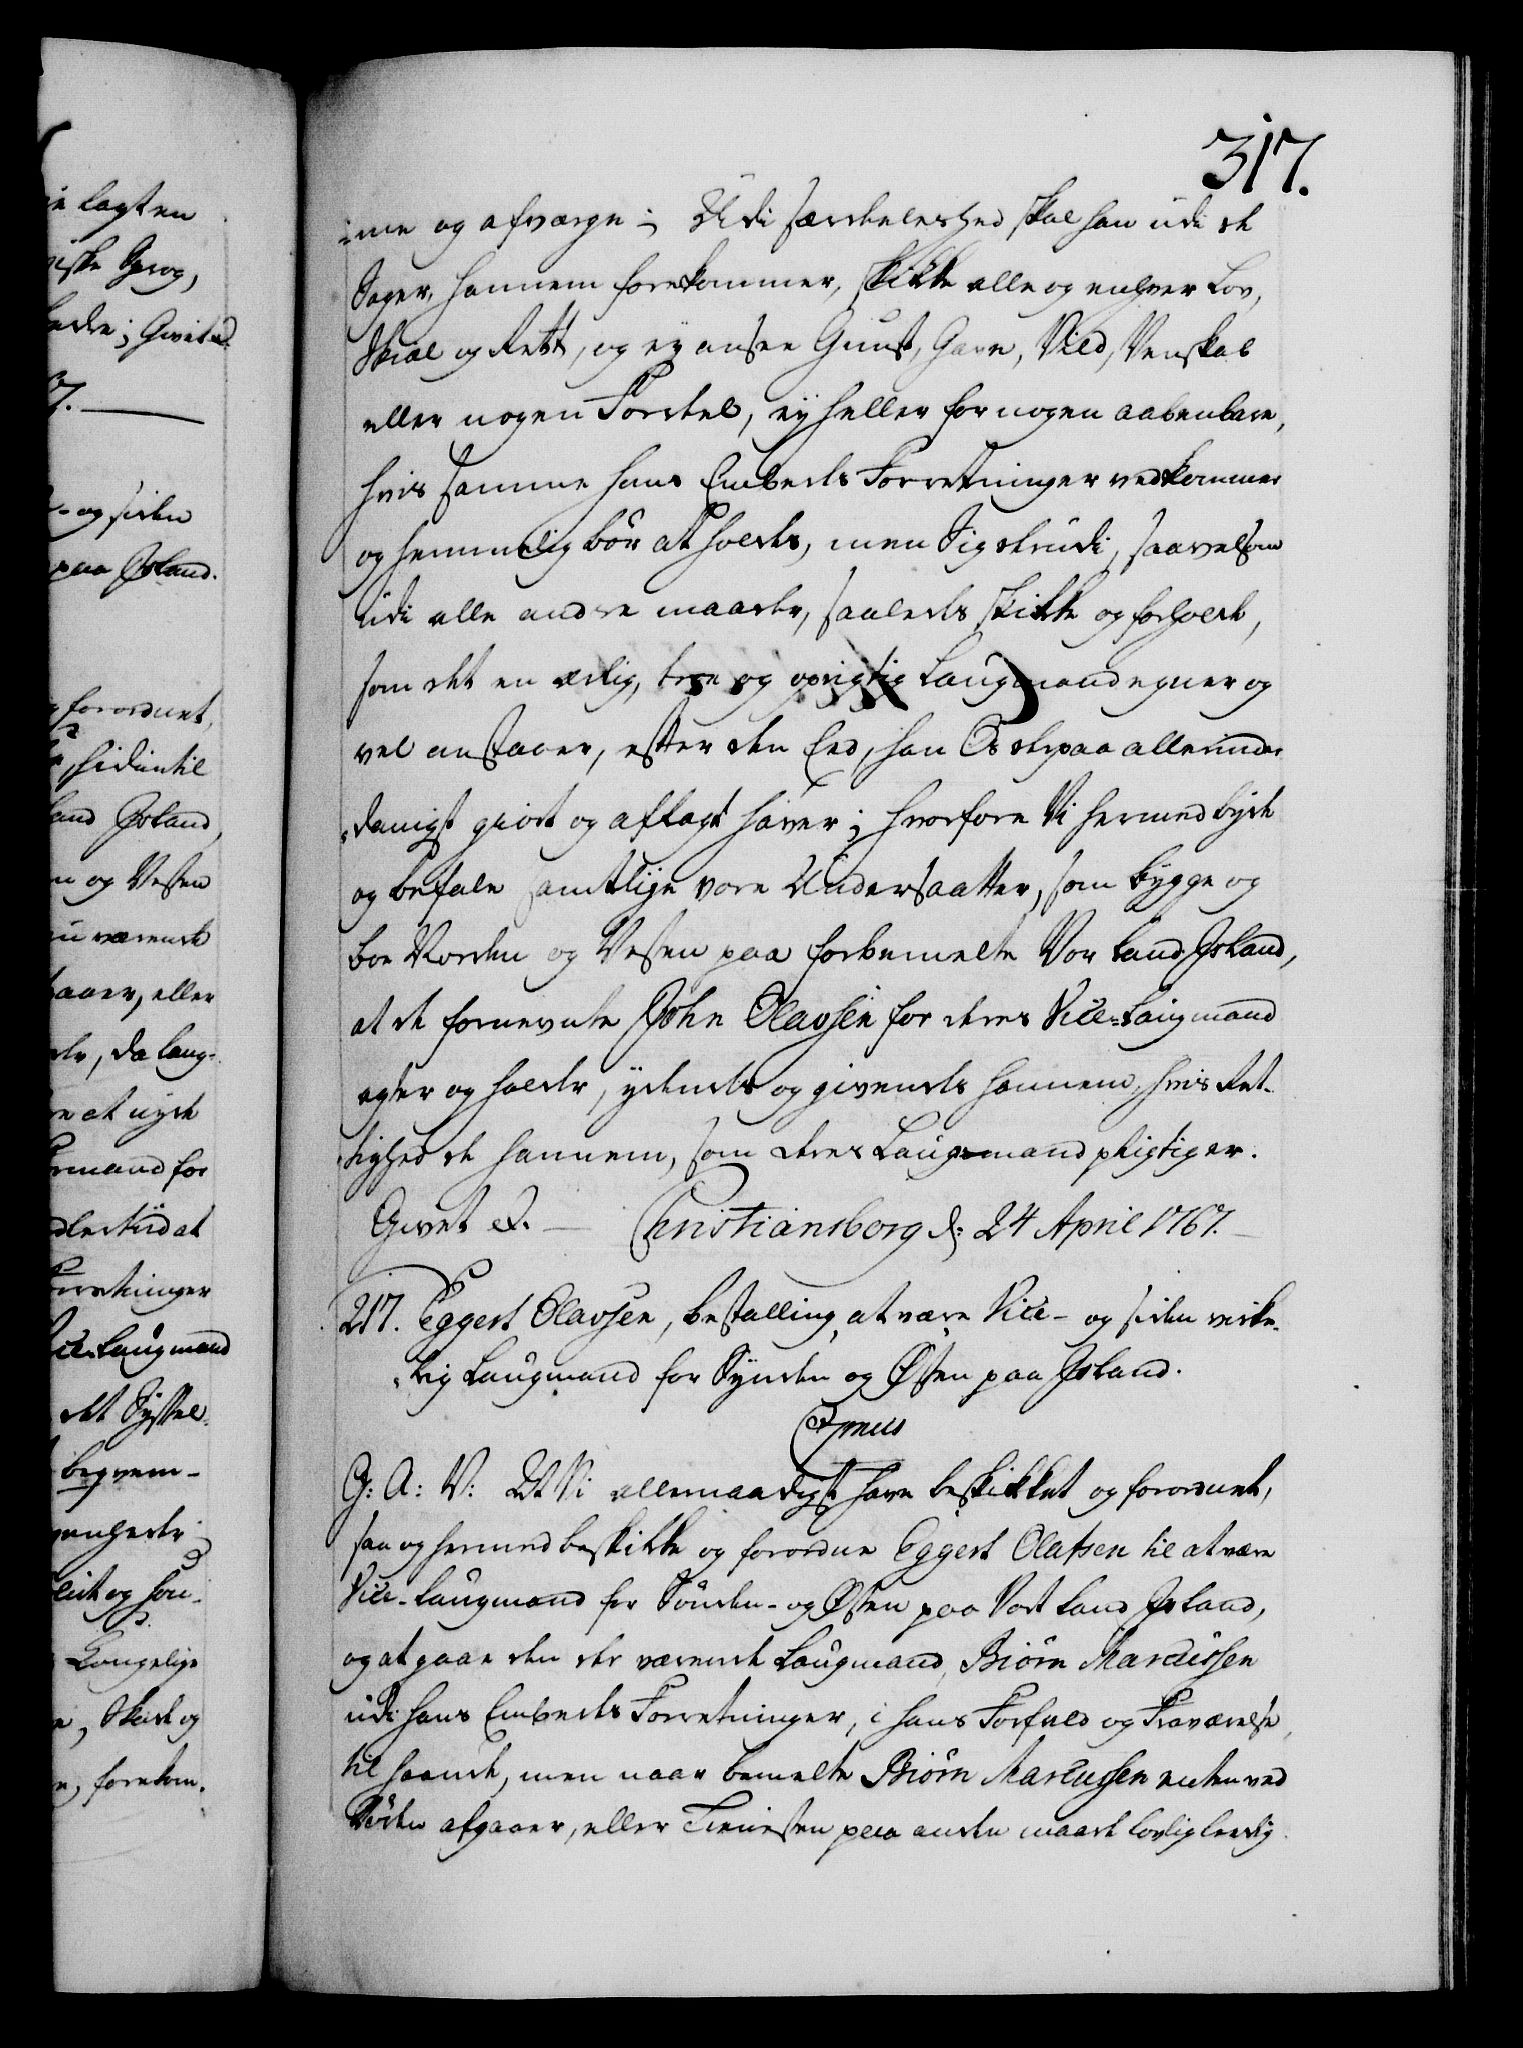 317.
=me og afværge; Udi særdeleshed skal han udi de
Sager, hannem forekommer, skikke alle og enhver Lov,
Skiæl og Rett, og ey ansee Gunst, Gave, Vild, Venskab
eller nogen Fordel, ey heller for nogen aabenbare,
hvis samme hans Embeds Forretninger vedkommer
og hemmelig bör at holdes, men Sig derudi, saavelsom
udi alle andre maader, saaledes skikke og forholde,
som det en ærlig, troe og oprigtig Laugmand egner og
vel anstaaer, efter den Eed, han Os derpaa allerunder
=danigst giort og aflagt haver; hvorfore Vi hermed byde
og befale samtlige vore Undersaatter, som bygge og
boe Norden og Vesten paa forbemelte Vor Land Island,
at de fornevnte John Olavsen for deres Vice-Laugmand
agter og holder, ydendes og givendes hannem, hvis Ret-
tighed de hannem, som deres Laugmand pligtig er.
Givet &. — Christiansborg d: 24 April 1767. —
217. Eggert Olavsen, bestalling, at være Vice- og siden virke-
=lig Laugmand for Synden og Østen paa Island.
G: A: V: At Vi allernaadigst have beskikket og forordnet,
saa og hermed beskikke og forordne Eggert Olafsen til at være
Vice-Laugmand for Sönden- og Østen paa Vort Land Island,
og at gaae den der værende Laugmand, Biörn Marcussen
udi hans Embeds Forretninger, i hans Forfald og Fraværelse,
til haande, men naar bemelte Biörn Marcussen enten ved
Döden afgaaer, eller Tienesten paa anden maade lovlig leedig
ie lagt en
iske Sprog,
Givet &
7. —
- og siden
paa Island.
forordnet,
hidintil
Land Island,
og Vesten
nu værende
gaaer, eller
da Laug-
at nyde
mand for
at
Forretninger
Vice-Laugmand
det Syssel-
beqvem-
og hen-
Kongelige
Skade og
forekom-